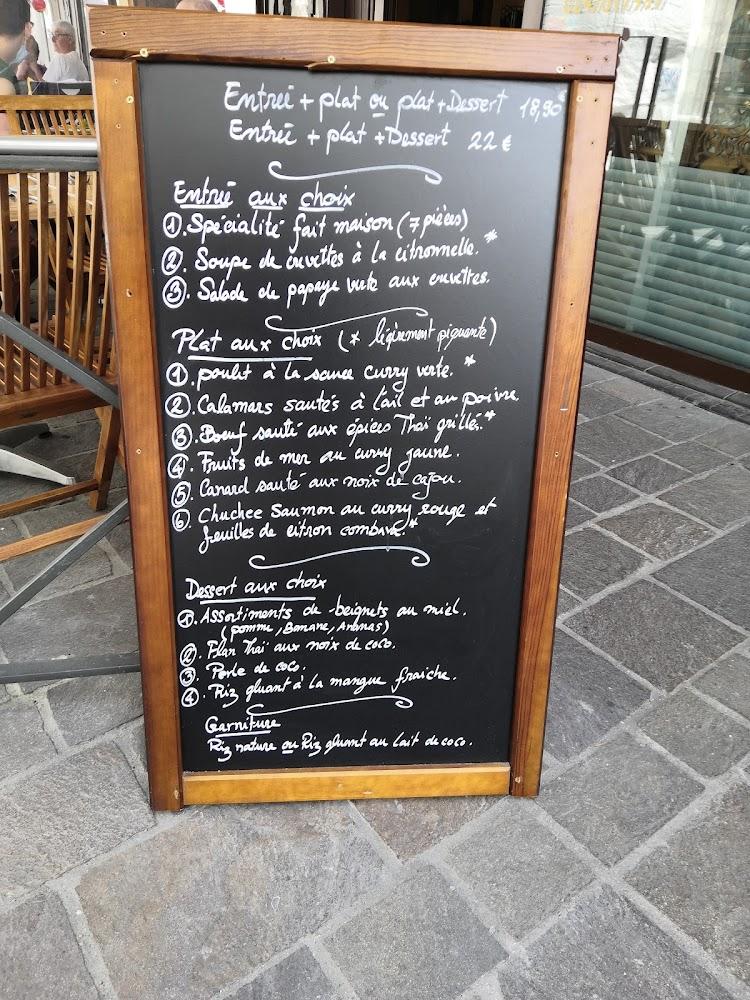 Entrée + plat ou plat + Dessert 18,90€
Entrée + plat + Dessert 22 €
Entrée aux choix
①. Spécialité fait maison (7 pièces)
②. Soupe de crevettes à la citronnelle. *
③. Salade de papaye verte aux crevettes.
Plat aux choix (* légèrement piquante)
①. poulet à la sauce curry verte. *
②. Calamars sautés à l'ail et au poivre.
③. Boeuf sauté aux épices Thaï grillés. *
④. Fruits de mer au curry jaune.
⑤. Canard sauté aux noix de cajou.
⑥. Chuchee Saumon au curry rouge et
feuilles de citron combava. *
Dessert aux choix
①. Assortiments de beignets au miel.
(pomme, Banane, Ananas)
②. Flan Thaï aux noix de coco.
③. Perle de coco.
④. Riz gluant à la mangue fraiche.
Garniture
Riz nature ou Riz gluant au lait de coco.